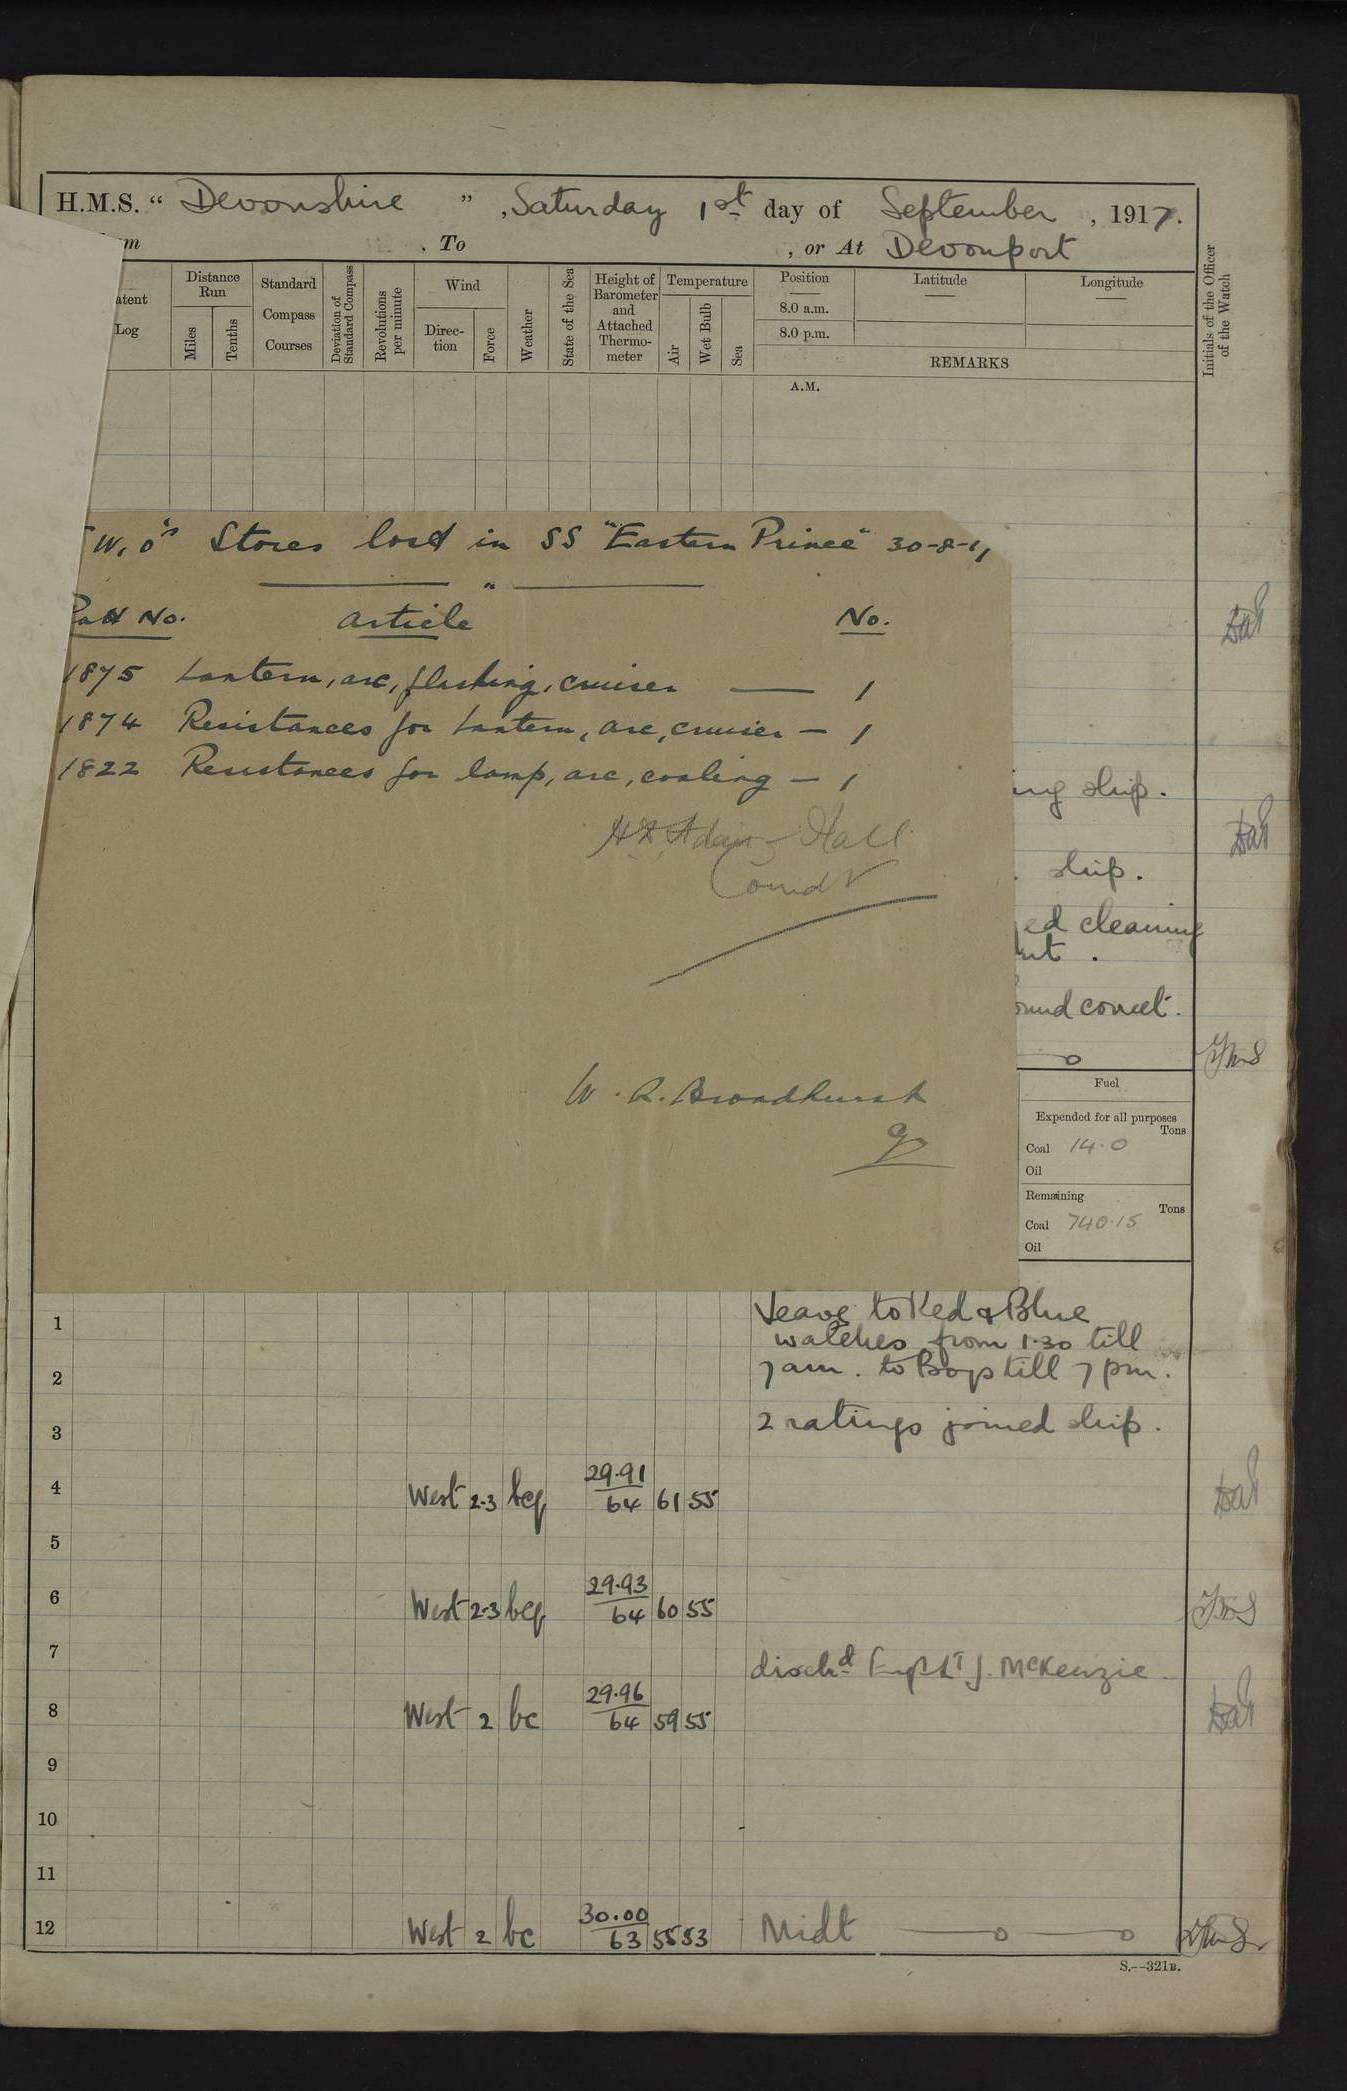 H.M.S. “ Devonshire ” , Saturday 1st day of September , 1917.
, To , or At Devonport
Log
Distance Run
Miles
Tenths
Standard Compass Courses
Deviation of Standard Compass
Revolutions per minute
Wind
Direction
Force
Weather
State of the Sea
Height of Barometer and Attached Thermometer
Temperature
Air
Wet Bulb
Sea
Position
8.0 a.m.
8.0 p.m.
Latitude
Longitude
REMARKS
Initials of the Officer of the Watch
A.M.
Stores lost in SS "Eastern Prince" 30-8-
No. Article No.
1875 Lantern, arc, flashing, cruiser — 1
1874 Resistances for Lantern, arc, cruiser — 1
1822 Resistances for lamp, arc, coaling — 1
Hall
Comdr
W. R. Broadhurst
ship.
ship.
cleaning
correct.
Fuel
Expended for all purposes
Tons
Coal 14.0
Oil
Remaining
Tons
Coal 740.15
Oil
1 Leave to Red & Blue
watches from 1.30 till
2 7 am. to Boys till 7 pm.
3 2 ratings joined ship.
4 West 2-3 bcq 29.91 64 61 55
5
6 West 2-3 bcq 29.93 64 60 55
7 disch'd J. McKenzie.
8 West 2 bc 29.96 64 59 55
9
10
11
12 West 2 bc 30.00 63 55 53 Midt
S.--321B.